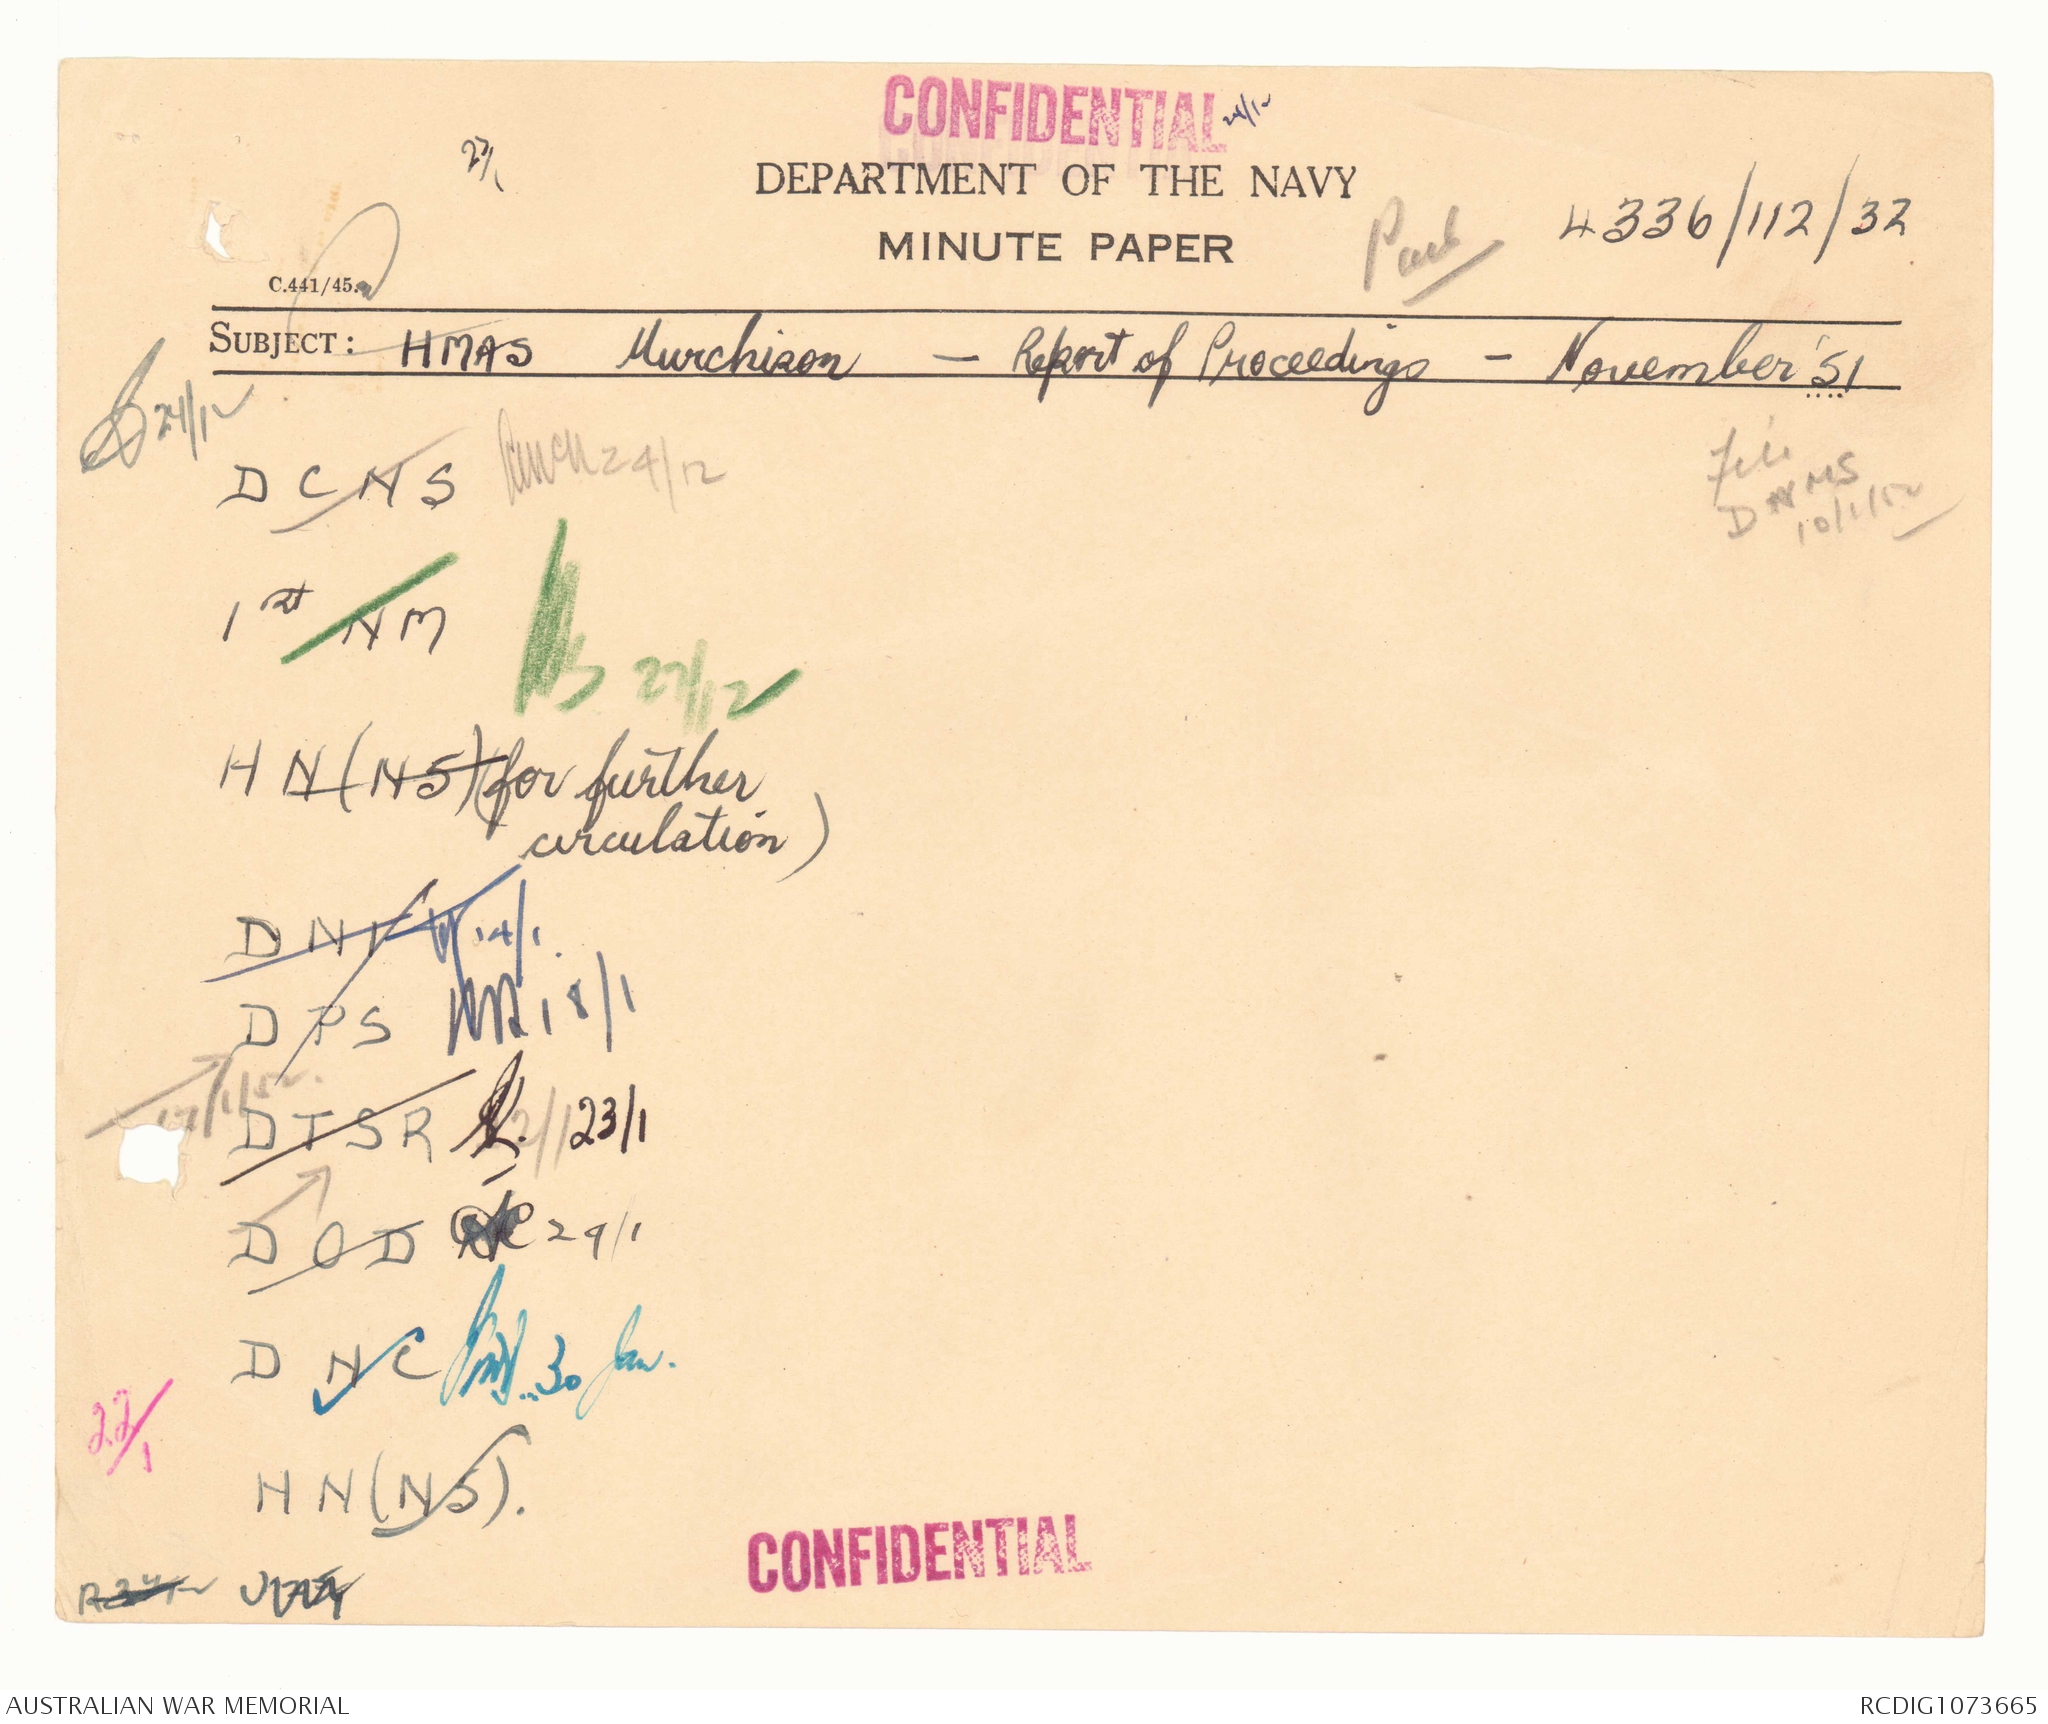 CONFIDENTIAL 24/12
27/1
DEPARTMENT OF THE NAVY
MINUTE PAPER
4336/112/32
C.441/45.
SUBJECT: HMAS Murchison — Report of Proceedings — November '51
24/12
File
DNMS
10/1/52
D C N S 24/12
1st NM
27/12
HN (NS) (for further
circulation)
D N I 14/1.
D P S 18/1
17/1/52.
D T S R 23/1
D O D 29/1
D N C 30 Jan.
22/1
H N (NS).
CONFIDENTIAL
AUSTRALIAN WAR MEMORIAL
RCDIG1073665